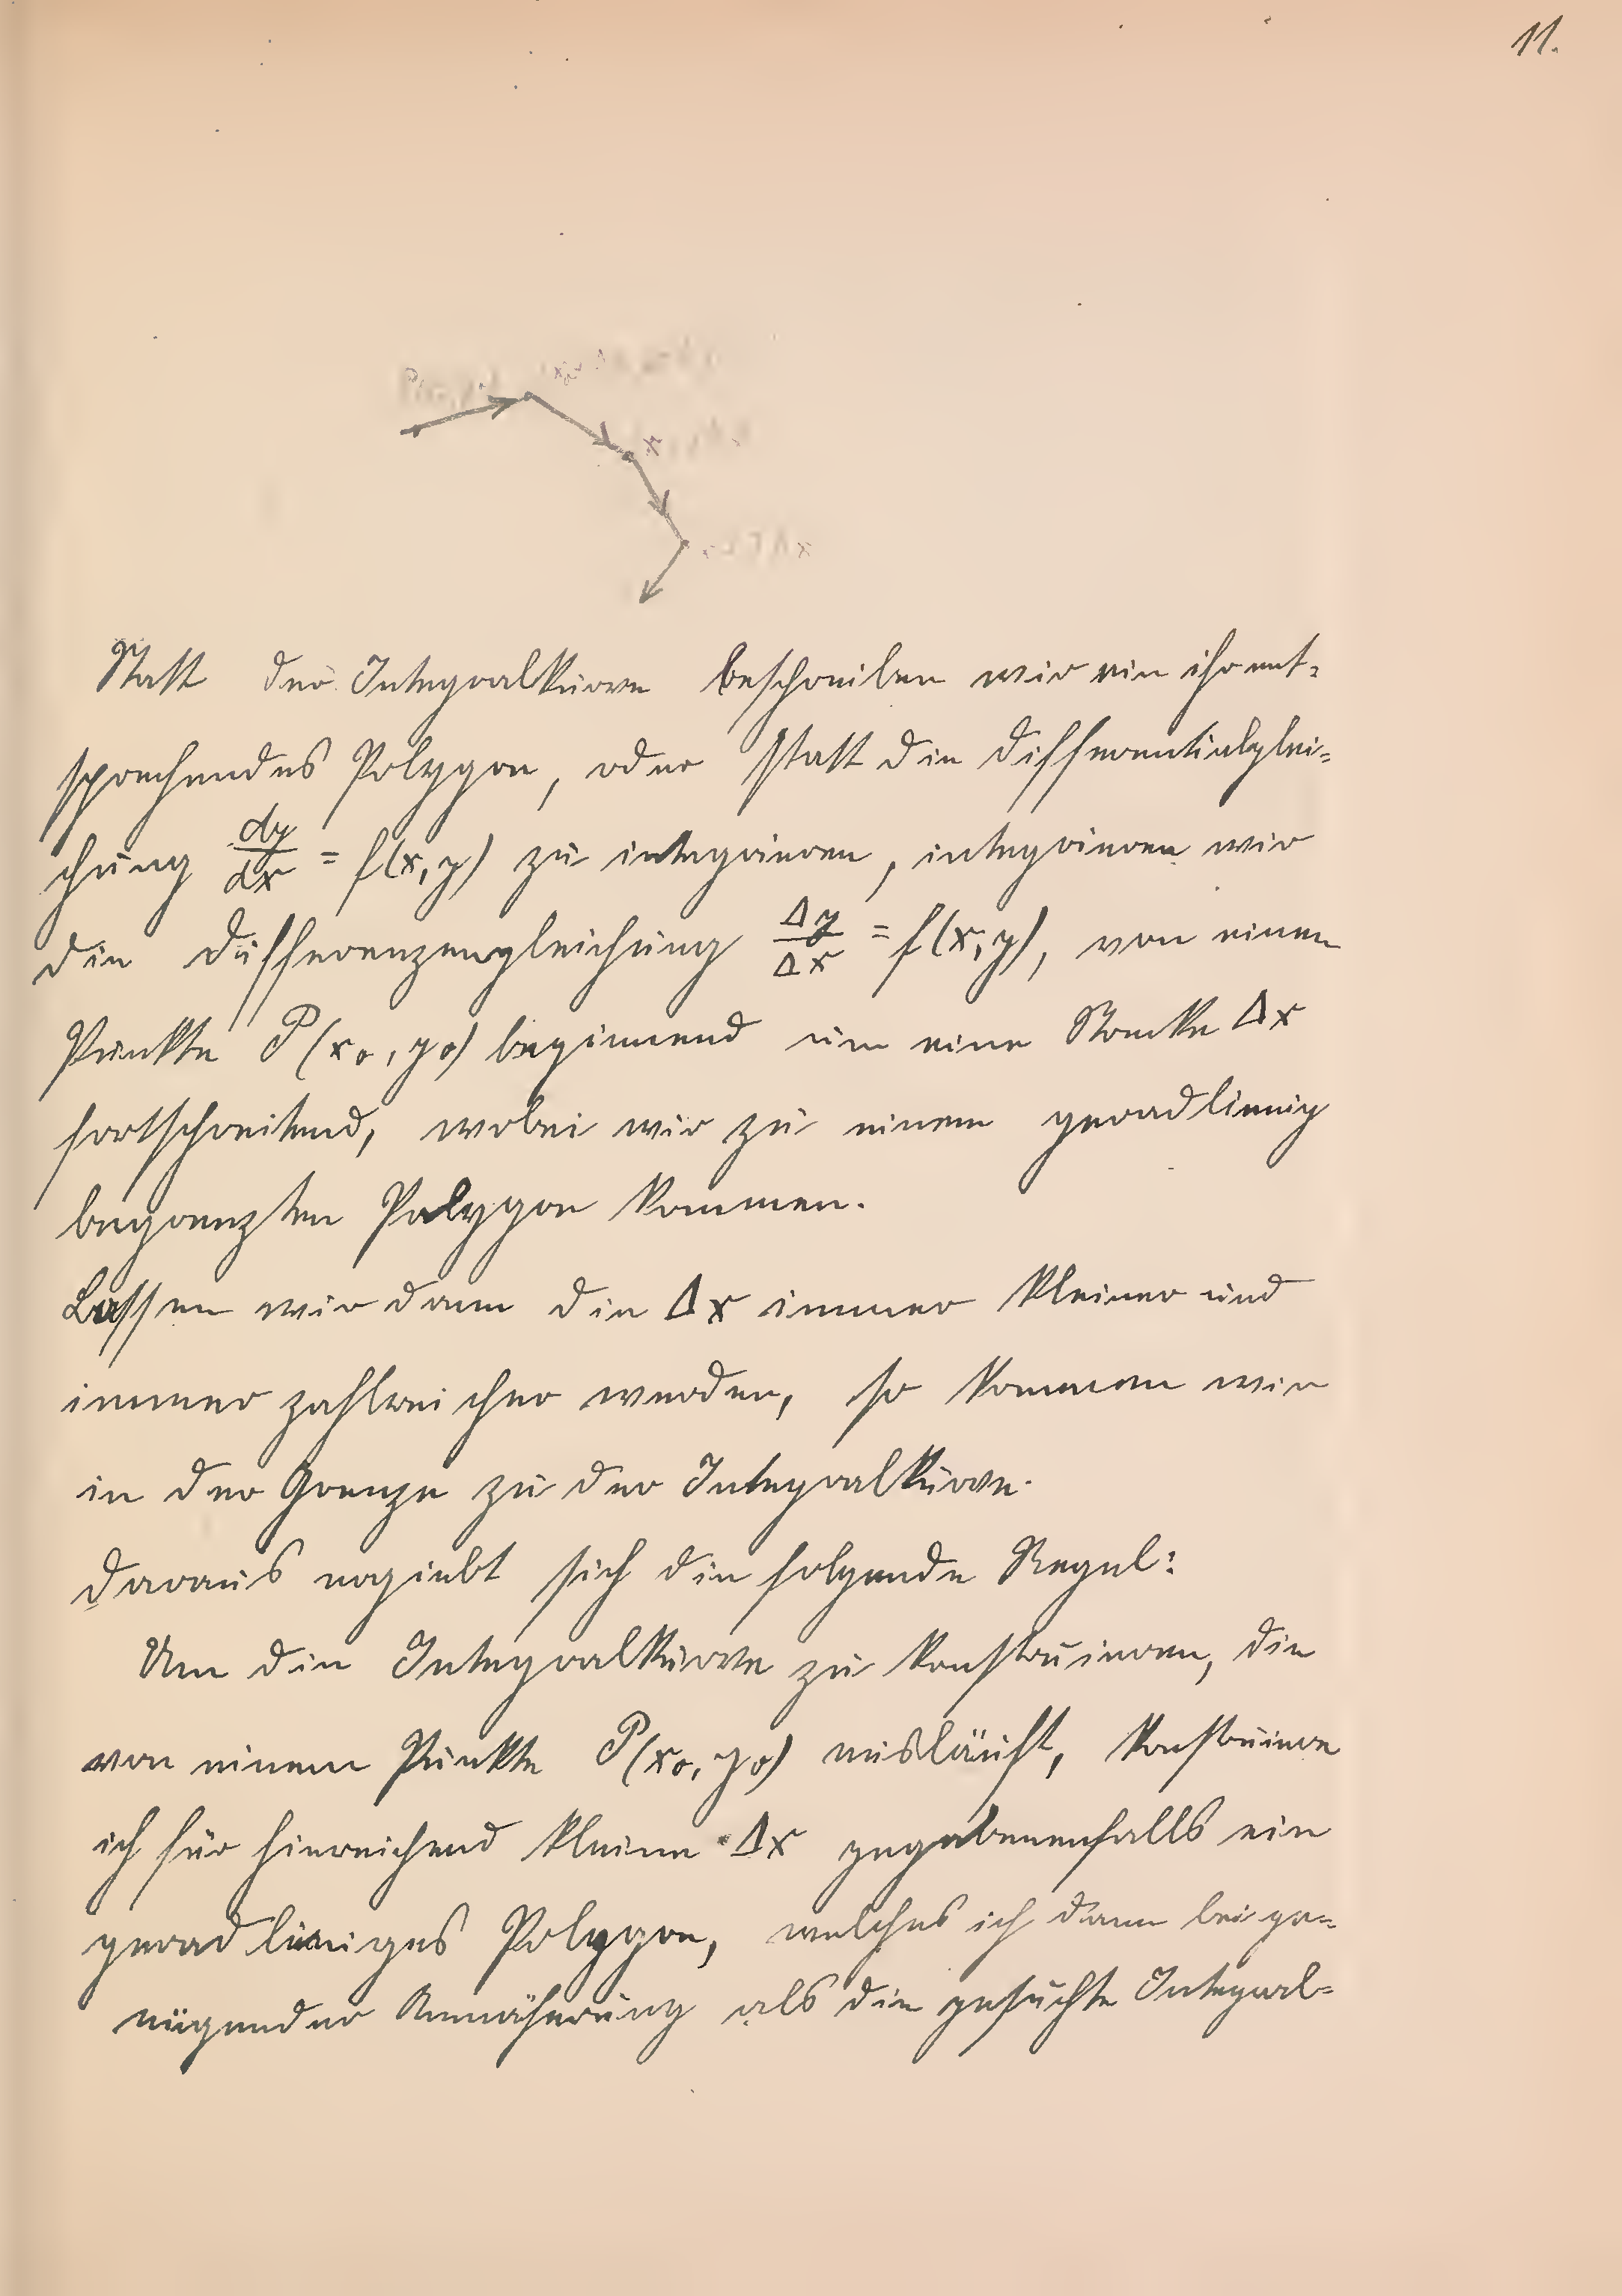 11.
Statt der Integralkurve beschreiben wir ein ihr ent-
sprechendes Polygon, oder statt die Differentialglei-
chung dy/dx = f(x, y) zu integrieren, integrieren wir
die Differenzengleichung Δy/Δx = f(x, y), von einem
Punkte P(x₀, y₀) beginnend um eine Strecke Δx
fortschreitend, wobei wir zu einem geradlinig
begrenzten Polygon kommen.
Lassen wir dann die Δx immer kleiner und
immer zahlreicher werden, so kommen wir
in der Grenze zu der Integralkurve.
Daraus ergiebt sich die folgende Regel:
Um die Integralkurve zu konstruieren, die
von einem Punkte P(x₀, y₀) ausläuft, konstruiere
ich für hinreichend kleine Δx gegebenenfalls ein
geradliniges Polygon, welches ich dann bei ge-
nügender Annäherung als die gesuchte Integral-